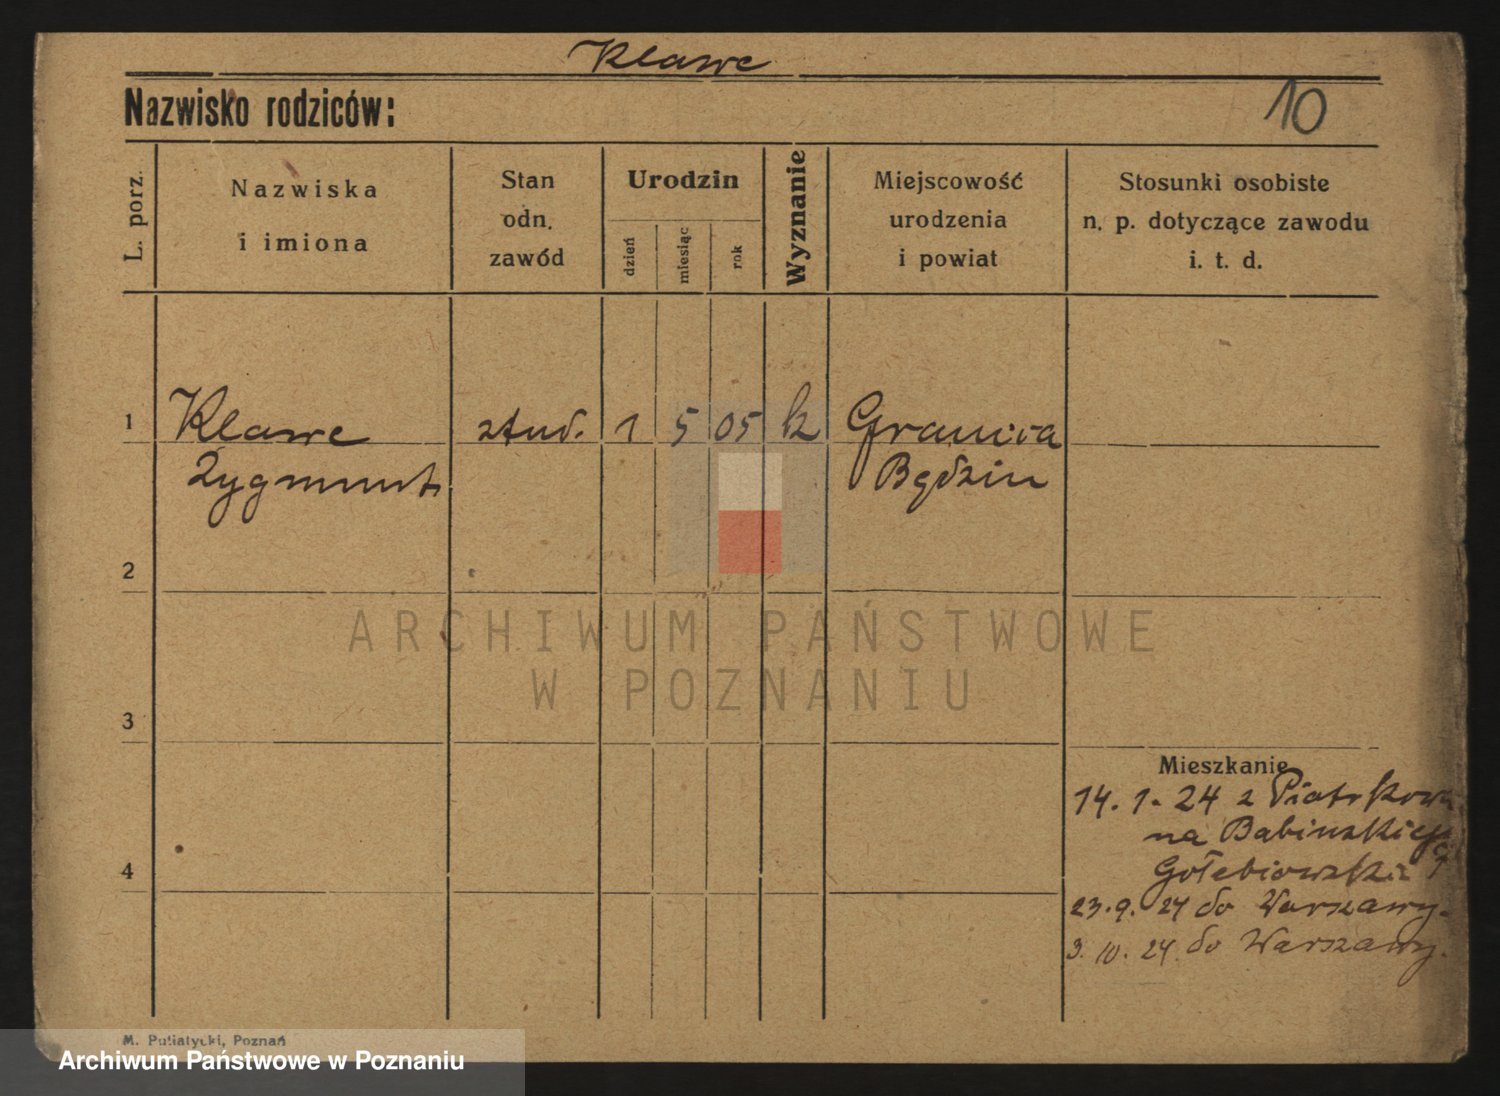 Klawe
Nazwisko rodziców:
10
L. porz.
Nazwiska
i imiona
Stan
odn.
zawód
Urodzin
dzień
miesiąc
rok
Wyznanie
Miejscowość
urodzenia
i powiat
Stosunki osobiste
n. p. dotyczące zawodu
i. t. d.
1
Klawe
Zygmunt
stud.
1
5
05
k
Granica
Będzin
2
ARCHIWUM PAŃSTWOWE
W POZNANIU
3
4
Mieszkanie
14. 1. 24 z Piotrkowa
na Babinskiego
Gołebiowski
23. 9. 24 do Warszawy.
3. 10. 24. do Warszawy.
M. Putiatycki, Poznań
Archiwum Państwowe w Poznaniu